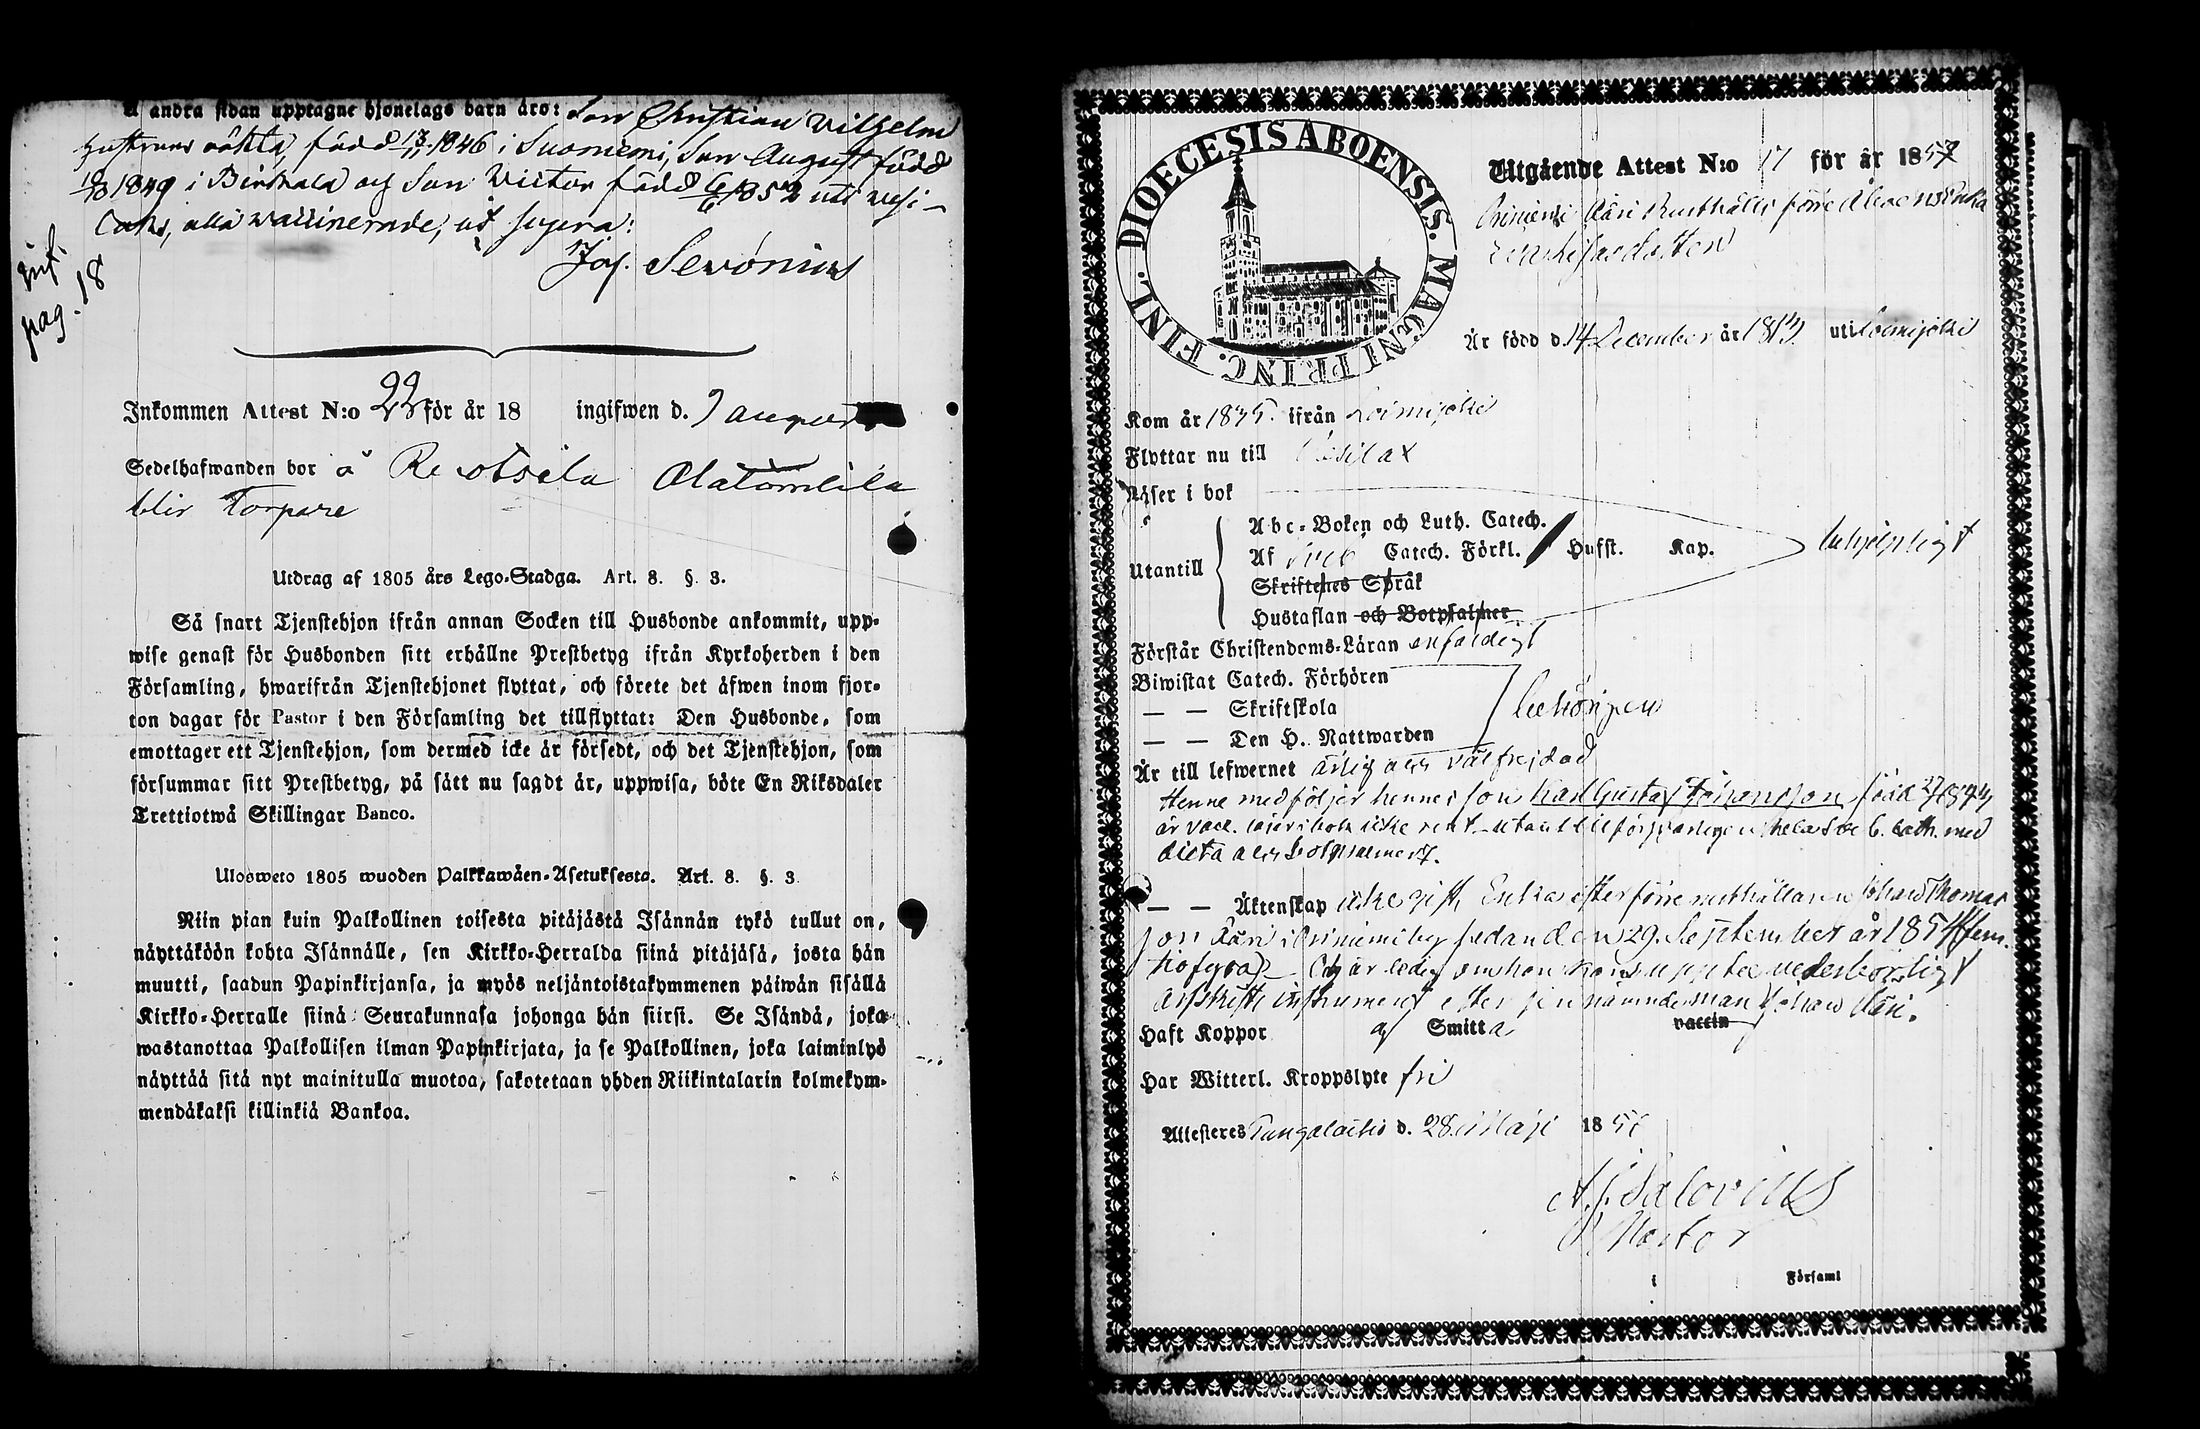 å andra sidan upptagne hjonelags barn äro: Son Christian Vilhelm
Hustruns oäkta, född 17/11 1846 i Suoniemi, Son August född
1849 i Birkkala och Son Victor född 1852 uti Vesi-
laks, alla waccinerade, ut supra:
Jos. Serónius
inf.
pag. 18
Inkommen Attest N:o 22 för år 18 ingifwen d. 9 august
Sedelhafwanden bor å Reotsila Alatomlila
blir Torpare
Utdrag af 1805 års Lego-Stadga. Art. 8. §. 3.
Så snart Tjenstehjon ifrån annan Socken till Husbonde ankommit, upp-
wise genast för Husbonden sitt erhållne Prestbetyg ifrån Kyrkoherden i den
Församling, hwarifrån Tjenstehjonet flyttat, och förete det äfwen inom fjor-
ton dagar för Pastor i den Församling det tillflyttat: Den Husbonde, som
emottager ett Tjenstehjon, som dermed icke är försedt, och det Tjenstehjon, som
försummar sitt Prestbetyg, på sätt nu sagdt är, uppwisa, böte En Riksdaler
Trettiotwå Skillingar Banco.
Ulosweto 1805 wuoden Palkkawäen-Asetuksesta. Art. 8. §. 3.
Niin pian kuin Palkollinen toisesta pitäjästä Isännän tykö tullut on,
näyttäköön kohta Isännälle, sen Kirkko-Herralda siinä pitäjäsä, josta hän
muutti, saadun Papinkirjansa, ja myös neljäntoistakymmenen päiwän sisällä
Kirkko-Herralle siinä Seurakunnasa johonga hän siirsi. Se Isändä, joka
wastanottaa Palkollisen ilman Papinkirjata, ja se Palkollinen, joka laiminlyö
näyttää sitä nyt mainitulla muotoa, sakotetaan yhden Riikintalarin kolmekym-
mendäkaksi killinkiä Bankoa.
DIOECESIS ABOENSIS. MAGNI PRINC. FINL.
Utgående Attest N:o 17 för år 1857
Är född d. 14 December år 1813 uti Loimijoki
Kom år 1835. ifrån Loimijoki
Flyttar nu till Vesilax
Läser i bok
Utantill
Abc-Boken och Luth. Catech.
Af Sveb. Catech. Förkl. Husst. Kap. behjelpligt
Skriftenes Språk
Hustaflan och Botpsalmer
Förstår Christendoms-Läran enfaldigt
Biwistat Catech. Förhören
— — Skriftskola behörigen
— — Den H. Nattwarden
Är till lefwernet ärlig och välfrejdad
Henne medföljer hennes son Karl Gustaf Johansson född
är vacc. läser i bok icke rent. utantill
dicta och botpsalmer
— — Äktenskap icke gift, Enka efter förre rusthållaren Johan Thomas
son Ääri i by sedan den 29. September år 1854 (fem-
tiofyra) — Och är ledig om hon kan uppte vederbörligt
afskifts instrument efter sin nämnde man Johan Ääri.
Haft Koppor af Smitta vaccin
Har Witterl. Kroppslyte fri
Attesteras Pungalaitio d. 28. Maji 1857
A. J. Salovius
Pastor
i Församl